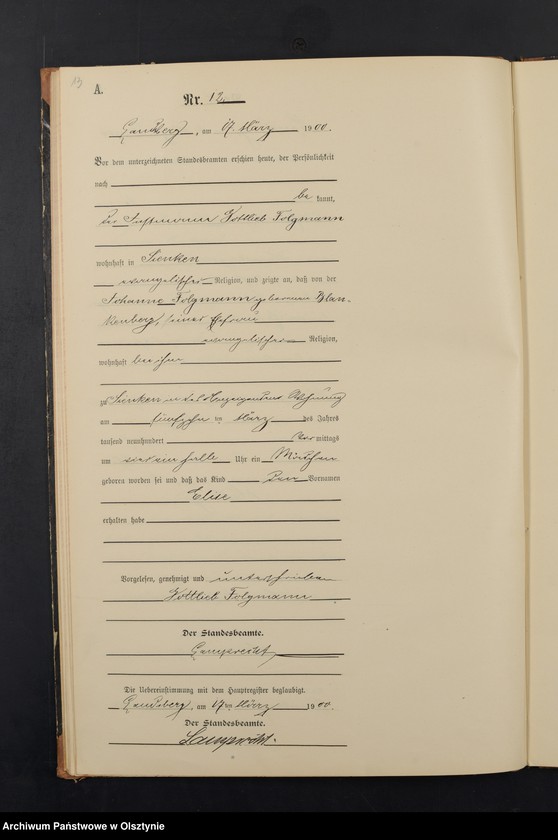 13
A.
Nr. 12
Landsberg, am 17. März 1900.
Vor dem unterzeichneten Standesbeamten erschien heute, der Persönlichkeit
nach
be kannt,
der Instmann Gottlieb Folgmann
wohnhaft in Sienken
evangelischer Religion, und zeigte an, daß von der
Johanne Folgmann geborenen Blan-
kenberg, seiner Ehefrau
evangelischer Religion,
wohnhaft bei ihm
zu Sienken in des Anzeigenden Wohnung
am fünfzehnten März des Jahres
tausend neunhundert Vor mittags
um ein halb Uhr ein Mädchen
geboren worden sei und daß das Kind den Vornamen
Elise
erhalten habe
Vorgelesen, genehmigt und unterschrieben
Gottlieb Folgmann
Der Standesbeamte.
Lamprecht
Die Uebereinstimmung mit dem Hauptregister beglaubigt.
Landsberg, am 17ten März 1900.
Der Standesbeamte.
Lamprecht.
Archiwum Państwowe w Olsztynie